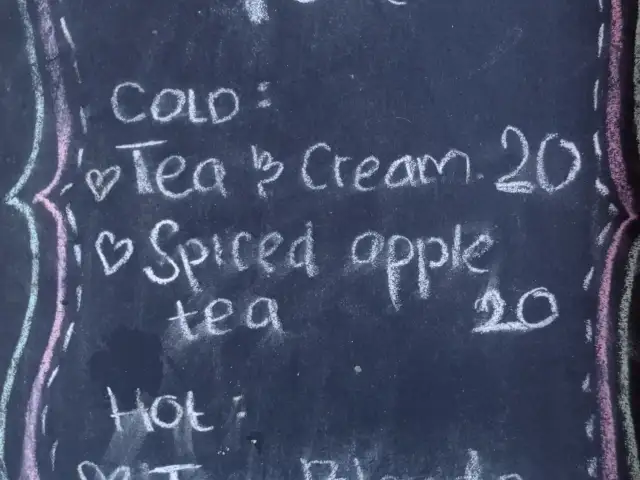 COLD:
♡ Tea & Cream. 20
♡ Spiced apple
tea 20
Hot: